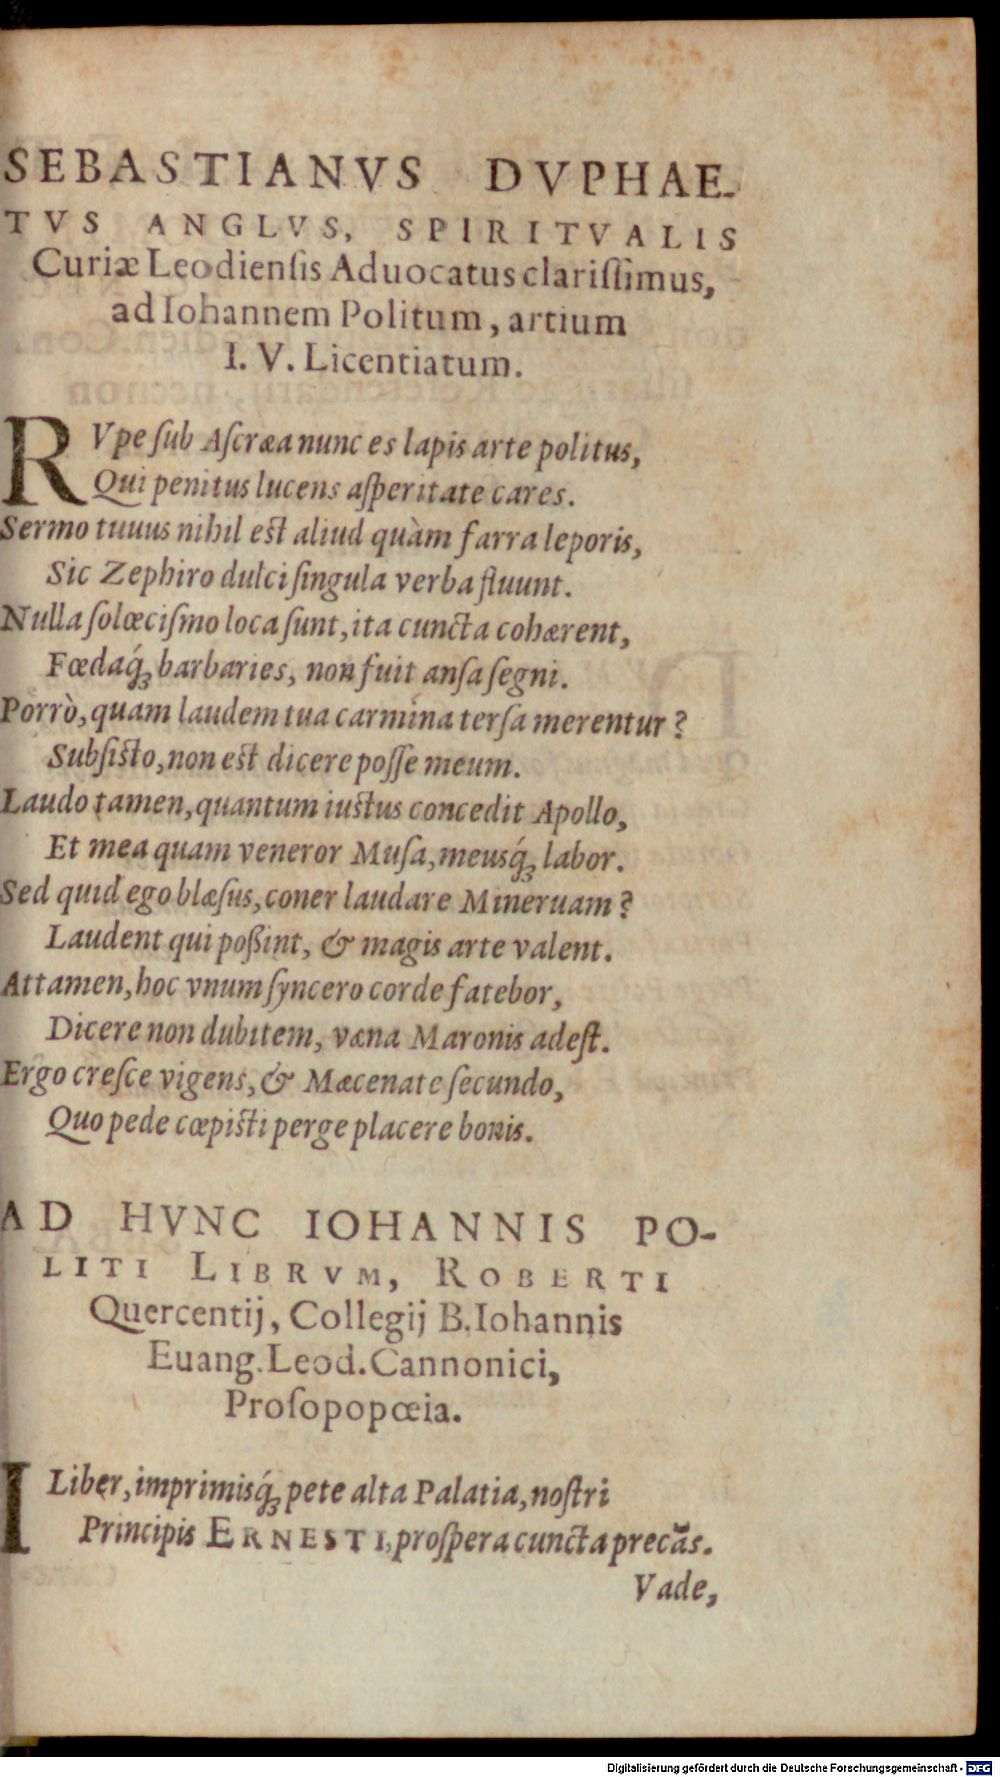 SEBASTIANVS DVPHAE-
TVS ANGLVS, SPIRITVALIS
Curiæ Leodienſis Aduocatus clariſſimus,
ad Iohannem Politum, artium
I. V. Licentiatum.
RVpe ſub Aſcræa nunc es lapis arte politus,
Qui penitus lucens aſperitate cares.
Sermo tuuus nihil est aliud quàm farra leporis,
Sic Zephiro dulci ſingula verba fluunt.
Nulla ſolœciſmo loca ſunt, ita cuncta cohærent,
Fœdaq́; barbaries, non fuit anſa ſegni.
Porrò, quam laudem tua carmina terſa merentur?
Subſisto, non est dicere poſſe meum.
Laudo tamen, quantum iustus concedit Apollo,
Et mea quam veneror Muſa, meusq́; labor.
Sed quid ego blæſus, coner laudare Mineruam?
Laudent qui poßint, & magis arte valent.
Attamen, hoc vnum ſyncero corde fatebor,
Dicere non dubitem, væna Maronis adeſt.
Ergo creſce vigens, & Mæcenate ſecundo,
Quo pede cœpisti perge placere bonis.
AD HVNC IOHANNIS PO-
LITI LIBRVM, ROBERTI
Quercentij, Collegij B. Iohannis
Euang. Leod. Cannonici,
Proſopopœia.
I Liber, imprimisq́; pete alta Palatia, noſtri
Principis ERNESTI, proſpera cuncta precãs.
Vade,
Digitalisierung gefördert durch die Deutsche Forschungsgemeinschaft - DFG